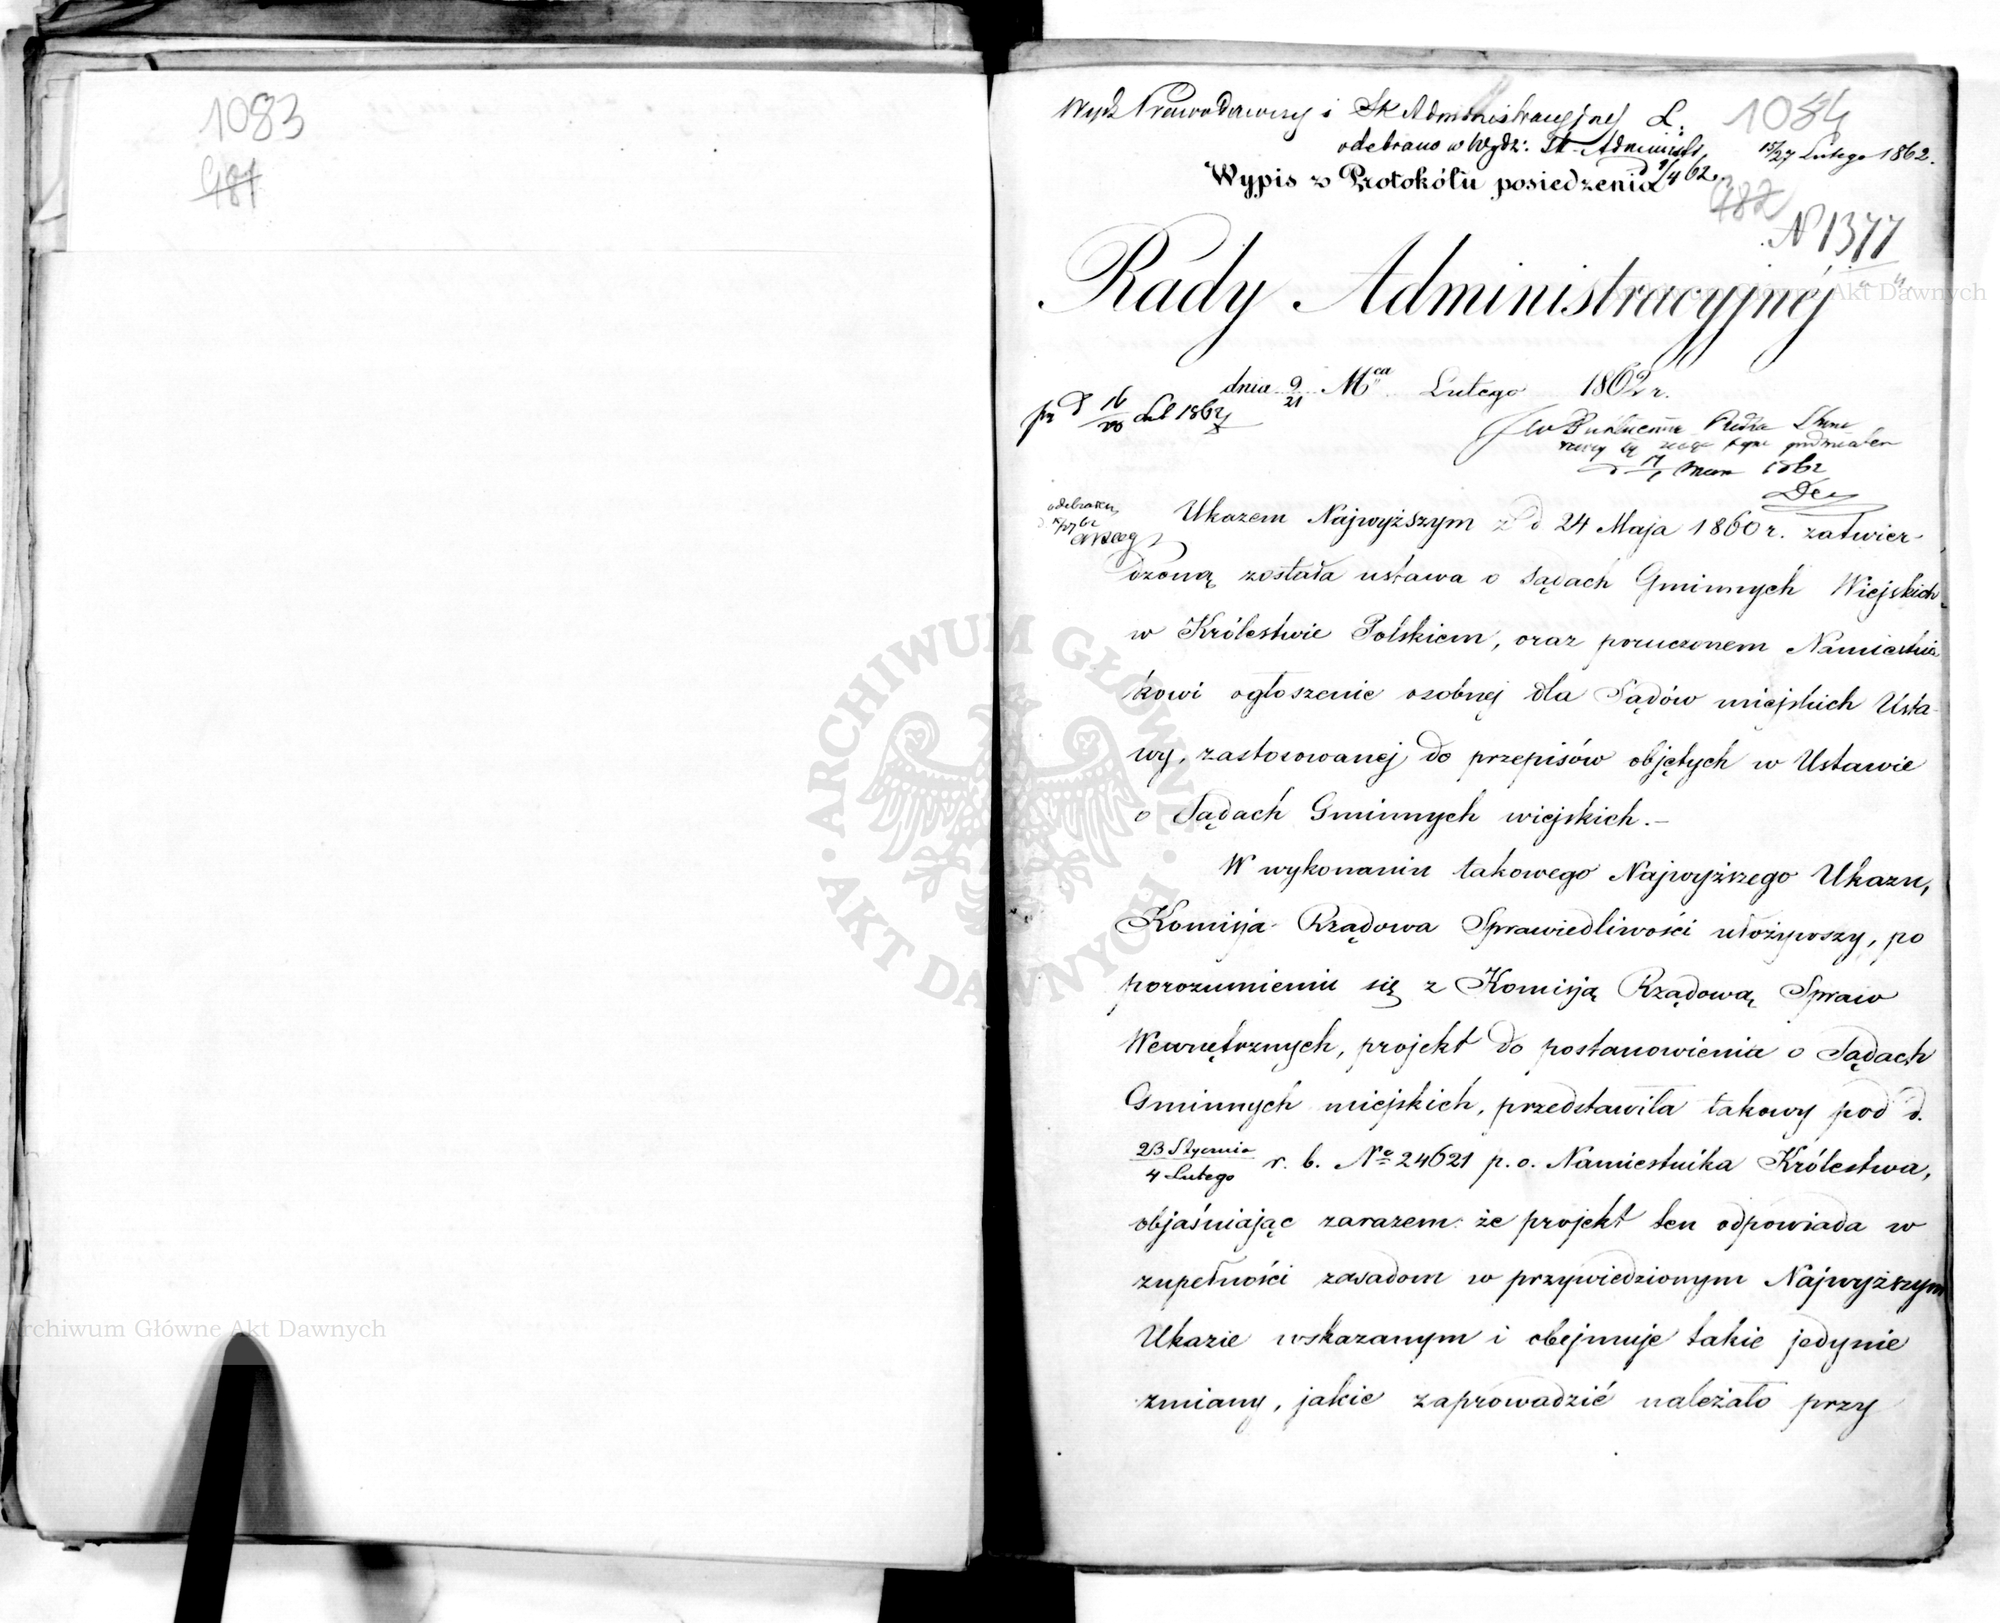 1083
481
Wydz Prawodawczy i Sk Administracyjnej
1084
odebrano w Wydz: Sk. Administr.
15/27 Lutego 1862.
1/4 62.
Wypis z Protokółu posiedzenia
482
N 1377
Rady Administracyjnéj
dnia 9/21 Mca Lutego 1862 r.
1862
odebrano
Ukazem Najwyższym z d 24 Maja 1860 r. zatwier-
dzoną została ustawa o Sądach Gminnych Wiejskich
w Królestwie Polskiem, oraz poruczonem Namiestni-
kowi ogłoszenie osobnej dla Sądów miejskich Usta-
wy, zastosowanej do przepisów objętych w Ustawie
o Sądach Gminnych wiejskich.–
W wykonaniu takowego Najwyższego Ukazu,
Komisja Rządowa Sprawiedliwości ułożywszy, po
porozumieniu się z Komisją Rządową Spraw
Wewnętrznych, projekt do postanowienia o Sądach
Gminnych miejskich, przedstawiła takowy pod d.
23 Stycznia/4 Lutego r. b. No 24621 p. o. Namiestnika Królestwa,
objaśniając zarazem: że projekt ten odpowiada w
zupełności zasadom w przywiedzionym Najwyższym
Ukazie wskazanym i obejmuje takie jedynie
zmiany, jakie zaprowadzić należało przy
Archiwum Główne Akt Dawnych
ARCHIWUM GŁÓWNE AKT DAWNYCH
Archiwum Główne Akt Dawnych